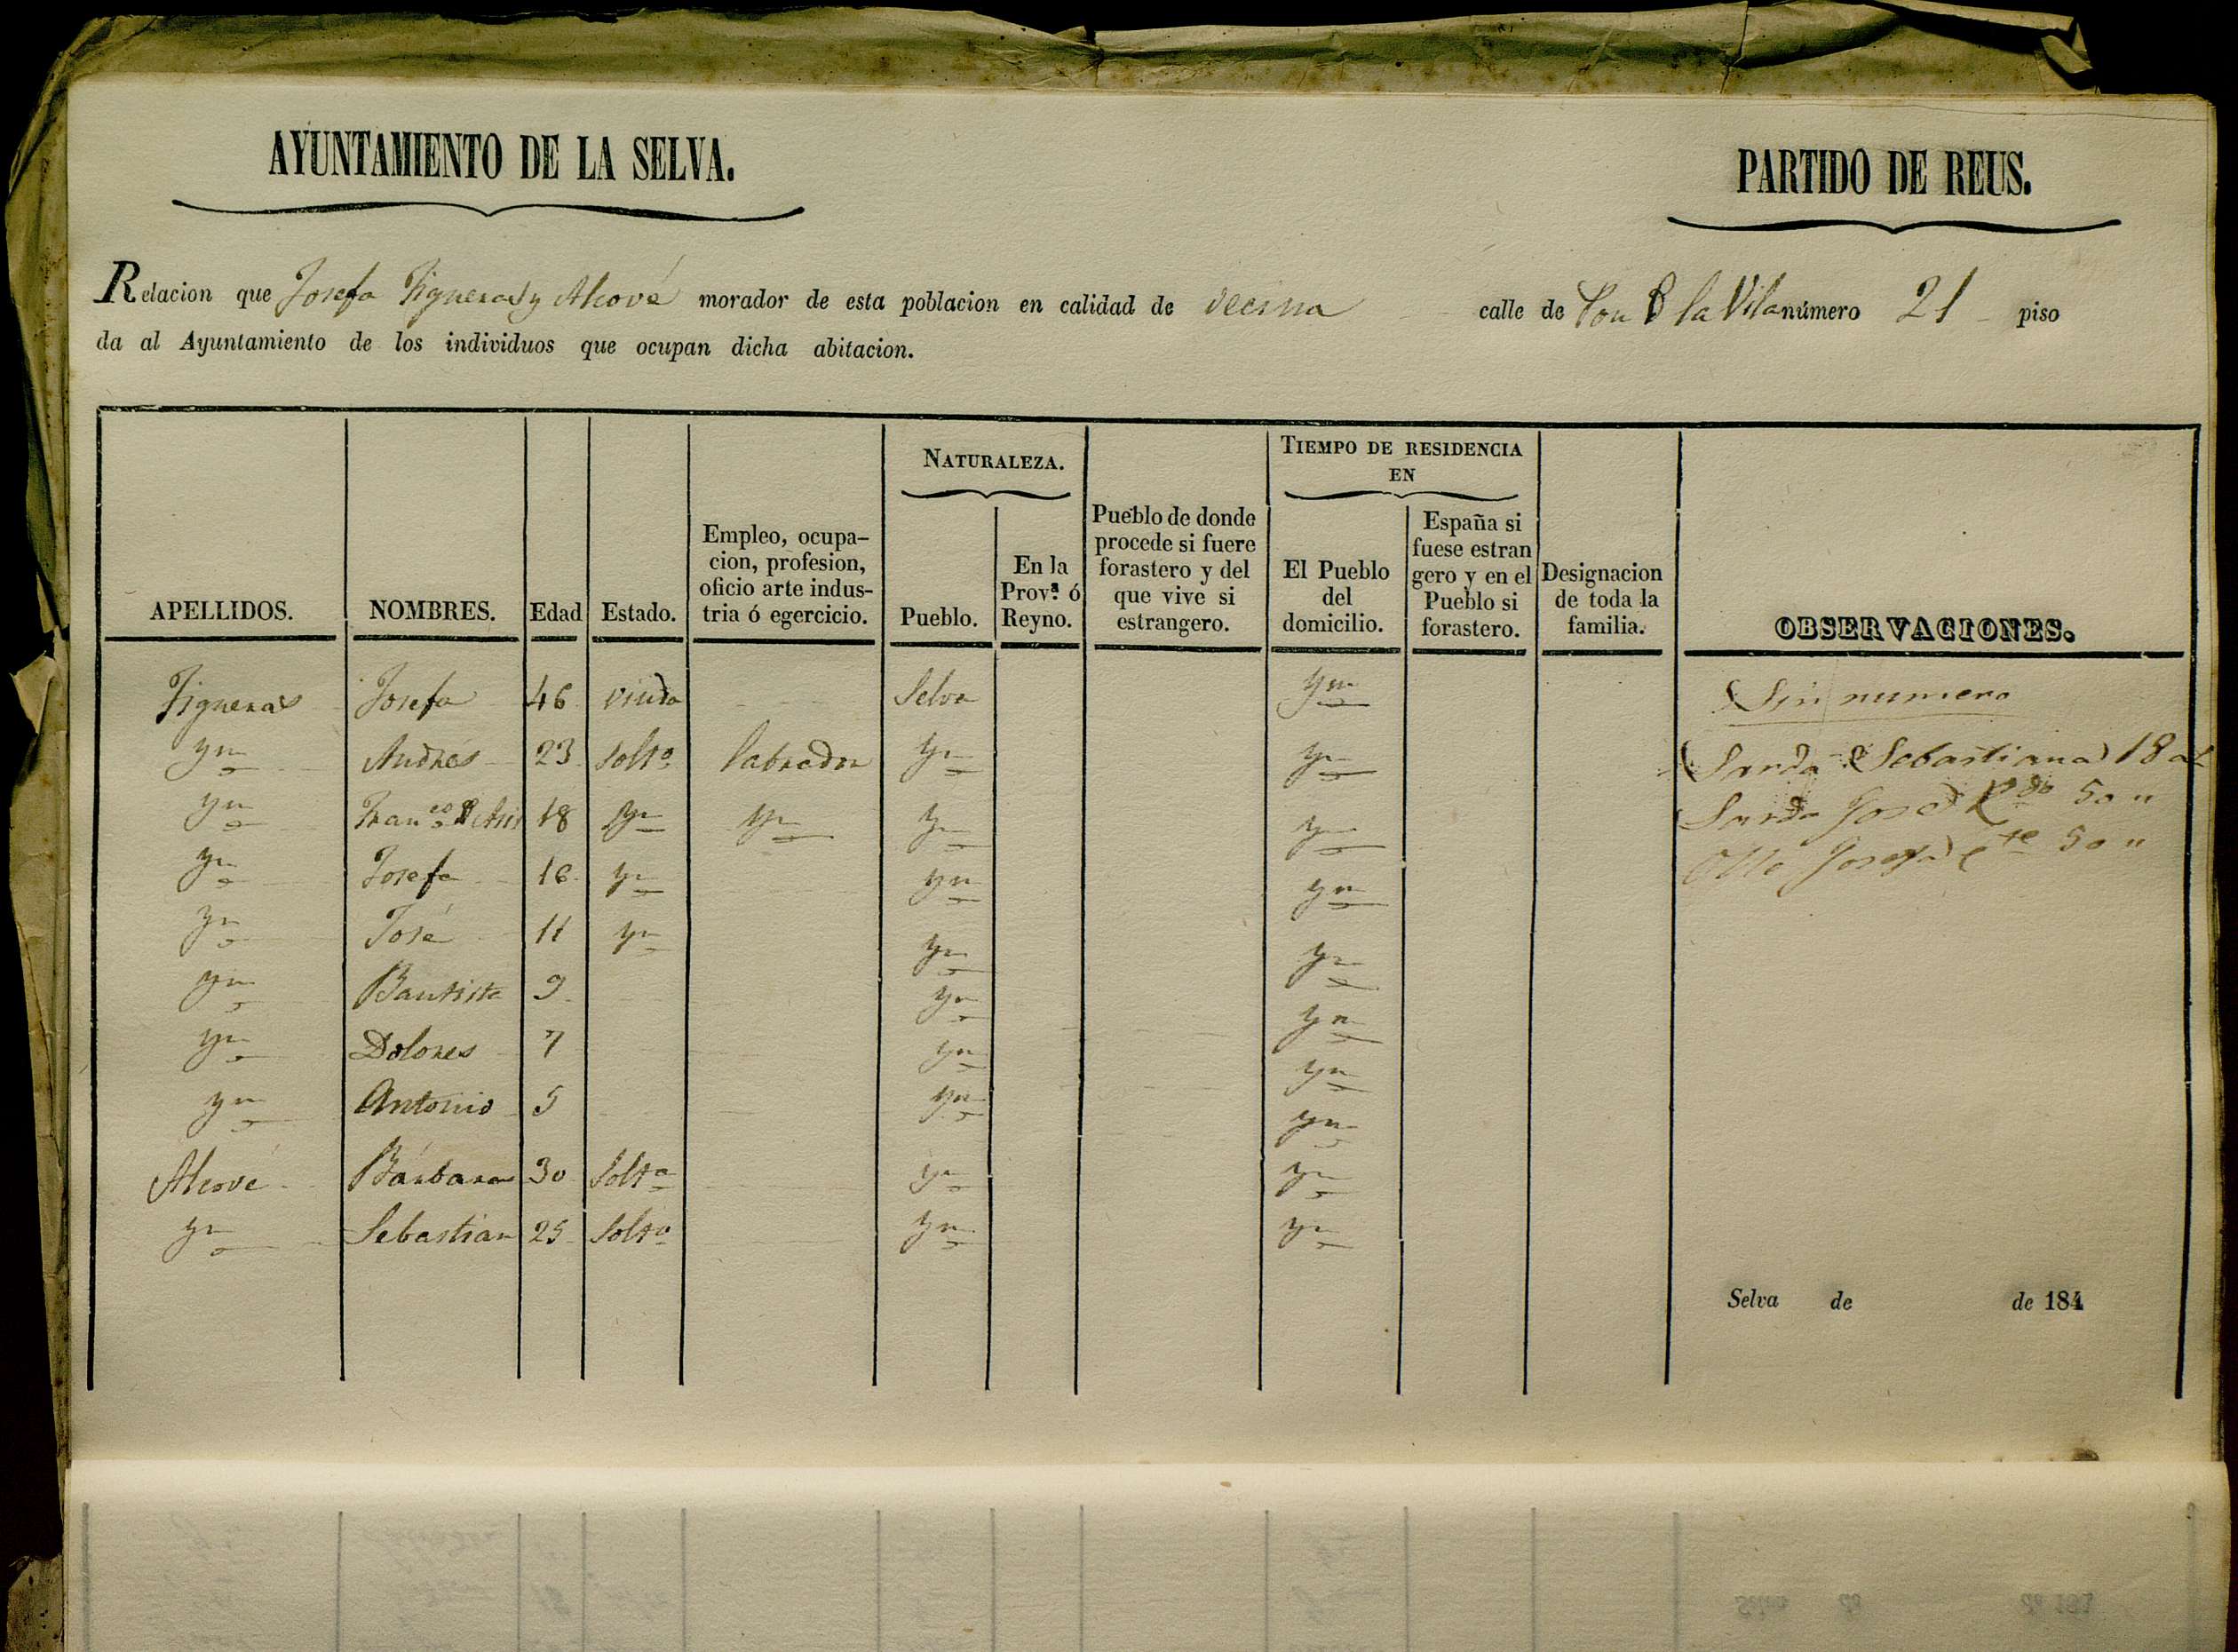 AYUNTAMIENTO DE LA SELVA.
PARTIDO DE REUS.
Relacion que Josefa Figueras y Alcové morador de esta poblacion en calidad de vecina calle de Pou d la Vila número 21 piso
da al Ayuntamiento de los individuos que ocupan dicha abitacion.
APELLIDOS. NOMBRES. Edad Estado. Empleo, ocupa-cion, profesion, oficio arte indus-tria ó egercicio. NATURALEZA. Pueblo. En la Prov.ª ó Reyno. Pueblo de donde procede si fuere forastero y del que vive si estrangero. TIEMPO DE RESIDENCIA EN El Pueblo del domicilio. España si fuese estran gero y en el Pueblo si forastero. Designacion de toda la familia. OBSERVACIONES.
Figueras Josefa 46 viuda Selva Ym Sin numero
ym Andrés 23 solto labrador ym ym Sarda Sebastiana 18 a
ym Franco d Asis 18 ym ym ym ym Sarda José 50 "
ym Josefa 16 ym ym ym Olle Josefa 50 "
ym José 11 ym ym ym
ym Bautista 9 ym ym
ym Dolores 7 ym ym
ym Antonio 5 ym ym
Alcové Bárbara 30 Solta ym ym
ym Sebastian 25 Solto ym ym
Selva de de 184